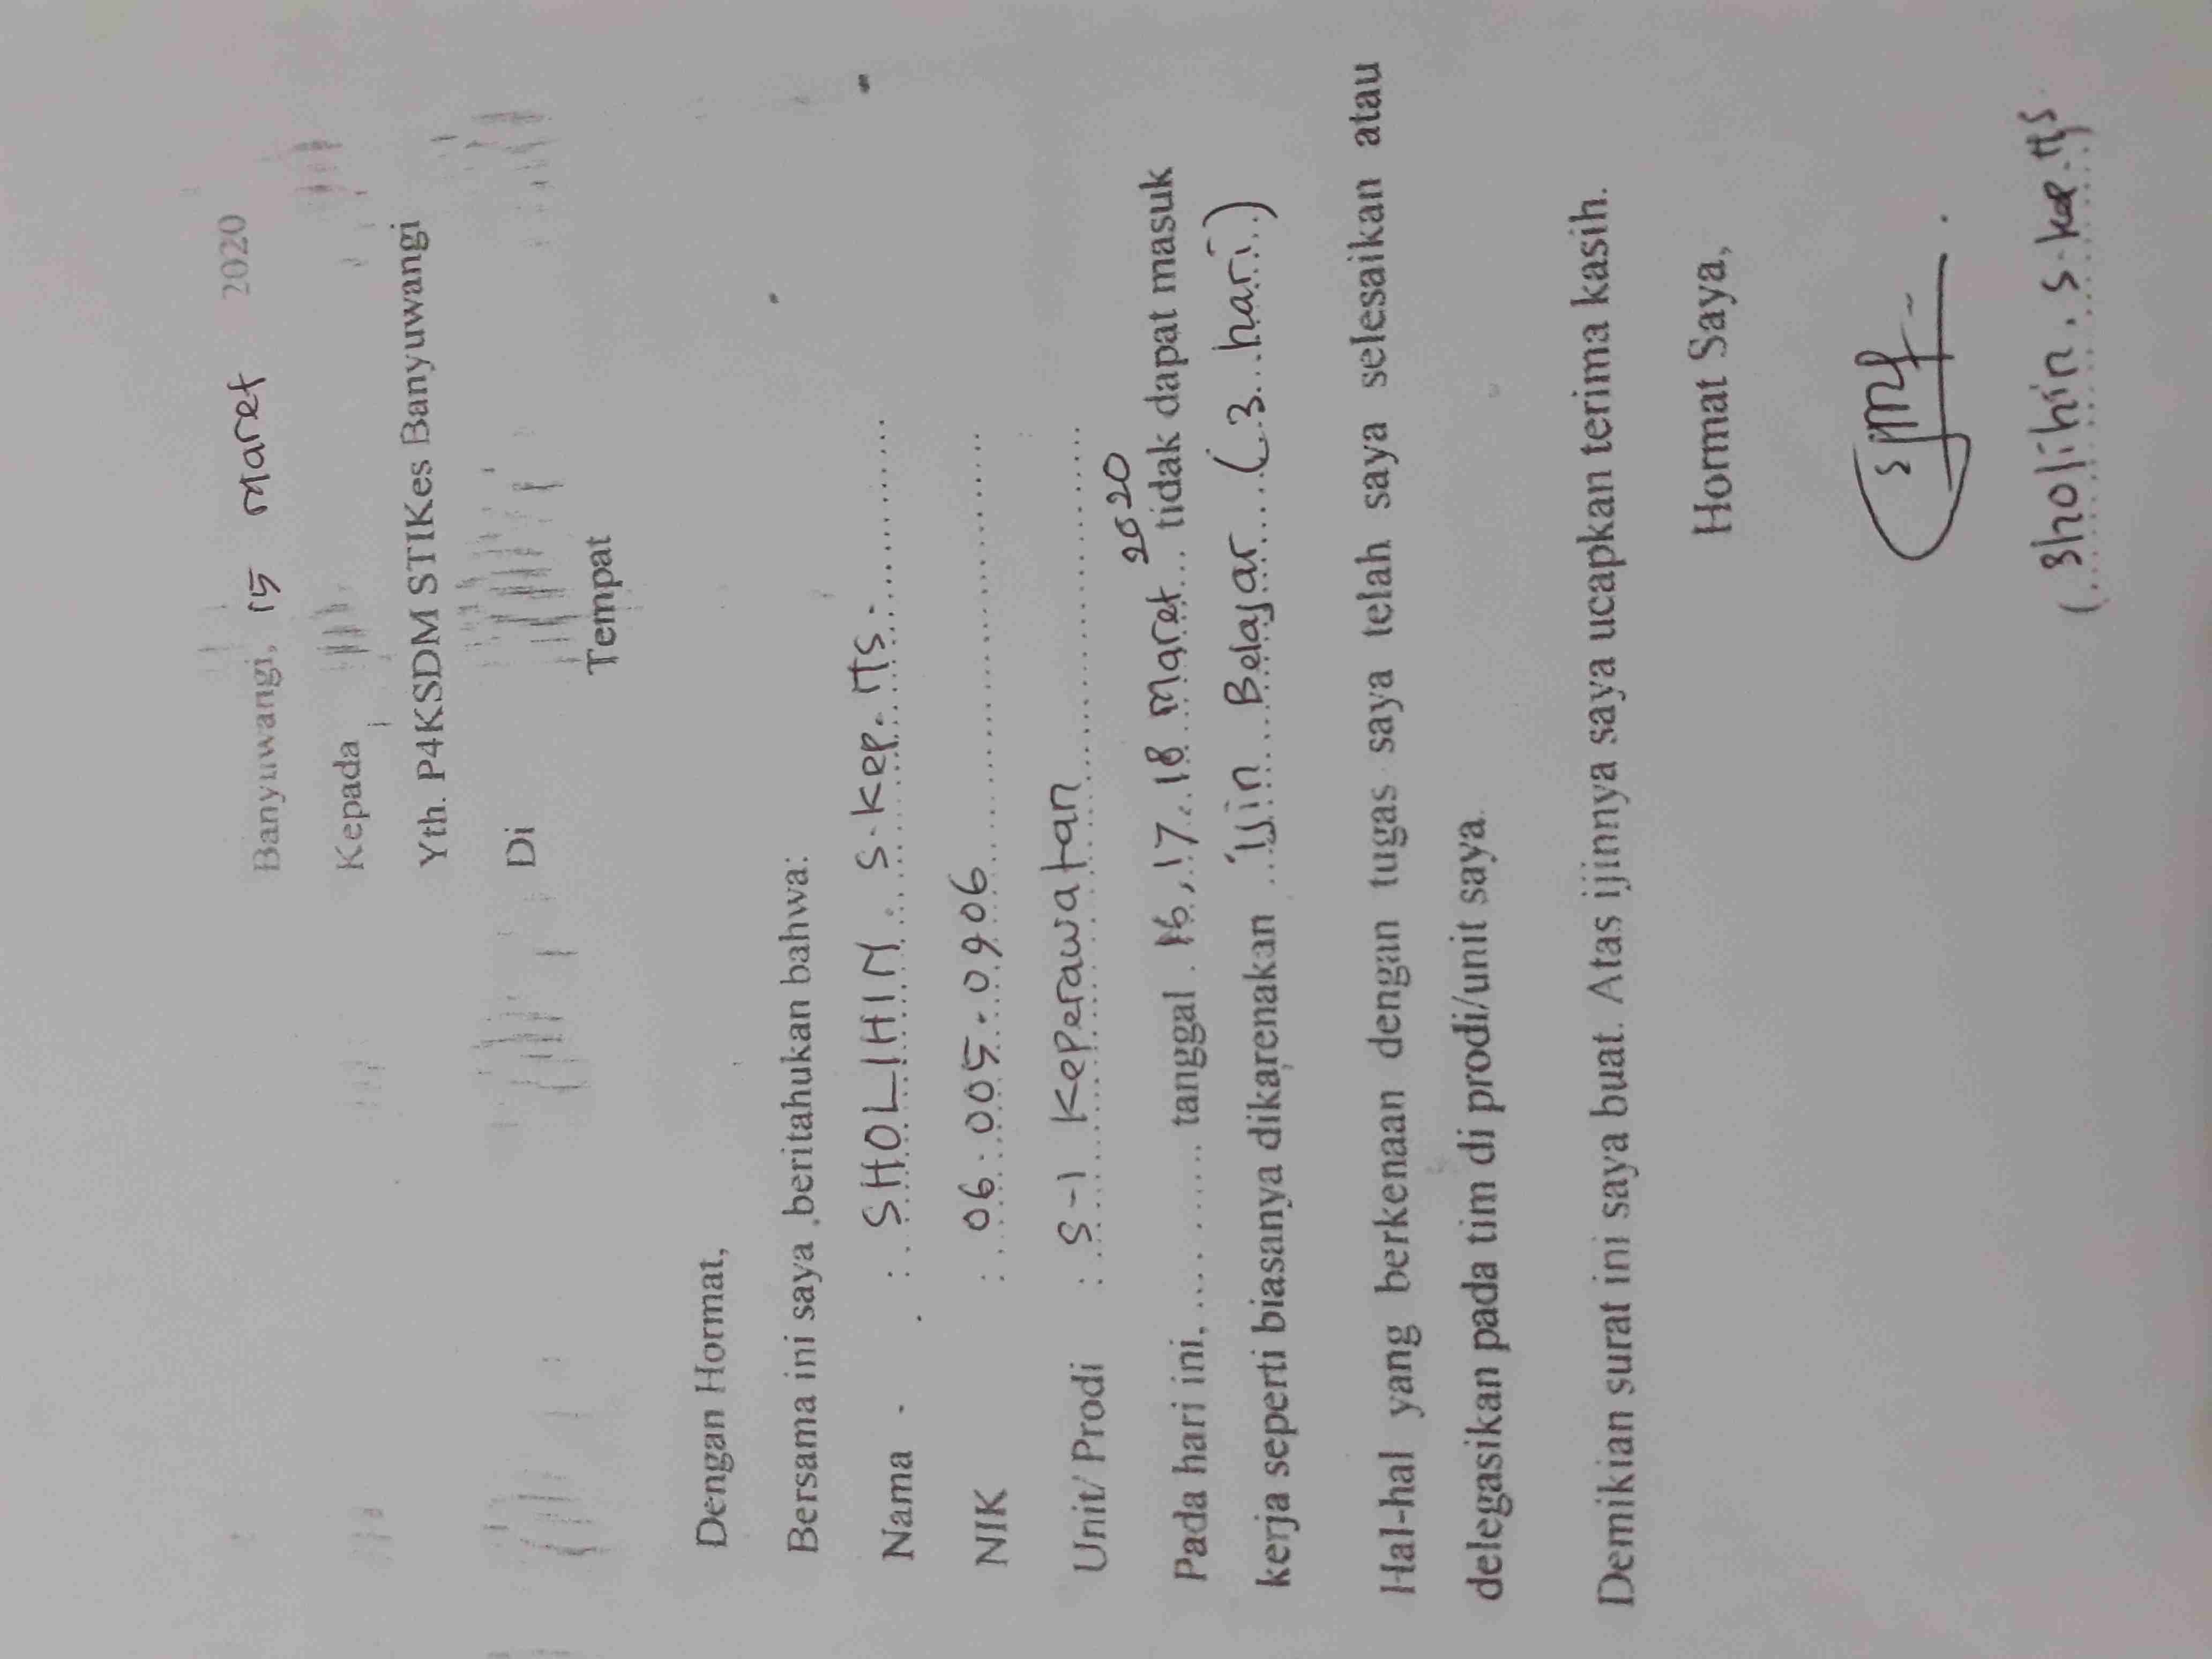 Banyuwangi, 15 Maret 2020
Kepada
Yth. P4KSDM STIKes Banyuwangi
Di
Tempat
Dengan Hormat,
Bersama ini saya beritahukan bahwa:
Nama : SHOLIHIN. S.Kep. Ns.
NIK : 06.005.0906
Unit/ Prodi : S-1 Keperawatan
Pada hari ini, .............. tanggal 16, 17, 18 Maret 2020 tidak dapat masuk
kerja seperti biasanya dikarenakan Ijin Belajar (3 hari)
Hal-hal yang berkenaan dengan tugas saya telah saya selesaikan atau
delegasikan pada tim di prodi/unit saya.
Demikian surat ini saya buat. Atas ijinnya saya ucapkan terima kasih.
Hormat Saya,
(Sholihin. S.Kep. Ns)